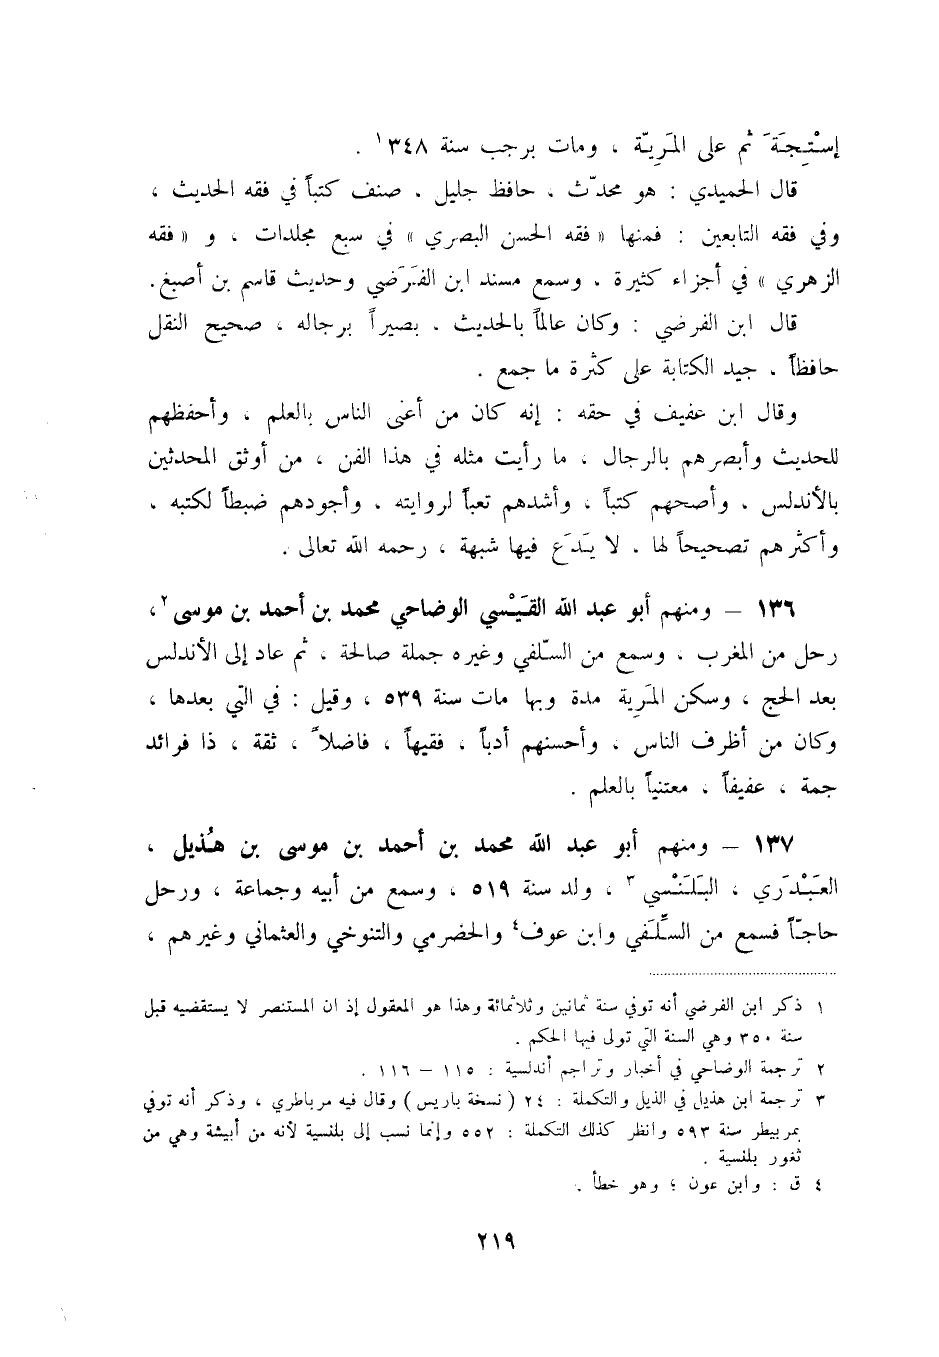 إسْتِجَةَ ثم على المَرِيّة ، ومات برجب سنة ٣٤٨ ١ .
قال الحميدي : هو محدّث ، حافظ جليل . صنف كتباً في فقه الحديث ،
وفي فقه التابعين : فمنها « فقه الحسن البصري » في سبع مجلدات ، و « فقه
الزهري » في أجزاء كثيرة . وسمع مسند ابن الفَرَضي وحديث قاسم بن أصبغ.
قال ابن الفرضي : وكان عالماً بالحديث . بصيراً برجاله ، صحيح النقل
حافظاً . جيد الكتابة على كثرة ما جمع .
وقال ابن عفيف في حقه : إنه كان من أعنى الناس بالعلم ، وأحفظهم
للحديث وأبصرهم بالرجال ، ما رأيت مثله في هذا الفن ، من أوثق المحدثين
بالأندلس ، وأصحهم كتباً ، وأشدهم تعباً لروايته . وأجودهم ضبطاً لكتبه .
وأكثرهم تصحيحاً لها . لا يَدَع فيها شبهة ، رحمه الله تعالى .
١٣٦ – ومنهم أبو عبد الله القَيْسي الوضاحي محمد بن أحمد بن موسى ٢،
رحل من المغرب ، وسمع من السِّلفي وغيره جملة صالحة ، ثم عاد إلى الأندلس
بعد الحج ، وسكن المَرِية مدة وبها مات سنة ٥٣٩ ، وقيل : في التي بعدها ،
وكان من أظرف الناس ، وأحسنهم أدباً ، فقيهاً ، فاضلاً ، ثقة ، ذا فرائد
جمة ، عفيفاً ، معتنياً بالعلم .
١٣٧ – ومنهم أبو عبد الله محمد بن أحمد بن موسى بن هُذيل ،
العَبْدَري ، البَلَنْسي ٣ ، ولد سنة ٥١٩ ، وسمع من أبيه وجماعة ، ورحل
حاجّاً فسمع من السِّلَفي وابن عوف٤ والحضرمي والتنوخي والعثماني وغيرهم ،
١ ذكر ابن الفرضي أنه توفي سنة ثمانين وثلاثمائة وهذا هو المعقول إذ ان المستنصر لا يستقضيه قبل
سنة ٣٥٠ وهي السنة التي تولى فيها الحكم .
٢ ترجمة الوضاحي في أخبار وتراجم أندلسية : ١١٥ – ١١٦ .
٣ ترجمة ابن هذيل في الذيل والتكملة : ٢٤ ( نسخة باريس ) وقال فيه مرباطري ، وذكر أنه توفي
بمربيطر سنة ٥٩٣ وانظر كذلك التكملة : ٥٥٢ وإنما نسب إلى بلنسية لأنه من أبيشة وهي من
ثغور بلنسية .
٤ ق : وابن عون ؛ وهو خطأ .
٢١٩